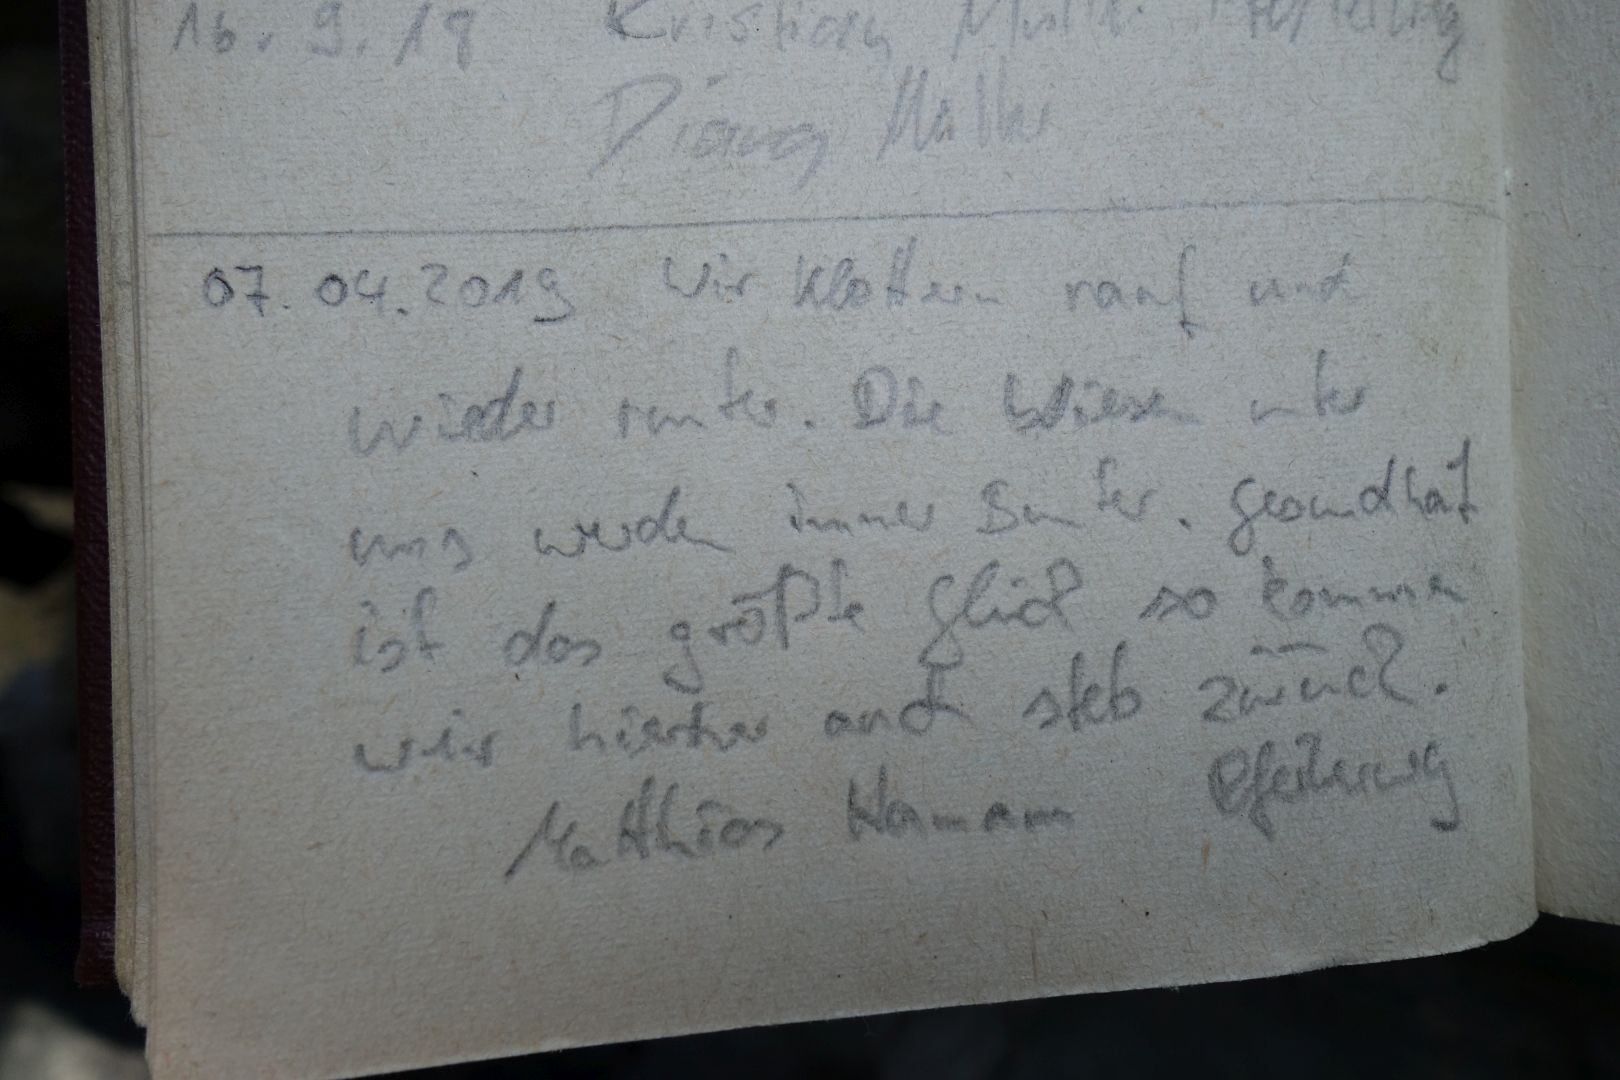 16.9.18 Kristian Müller
Diana Müller
07.04.2019 Wir klettern rauf und
wieder runter. Die Wiesen unter
uns werden immer Bunter. Gesundheit
ist das größte Glück so kommen
wir hierher auch stets zurück.
Matthias Hamann